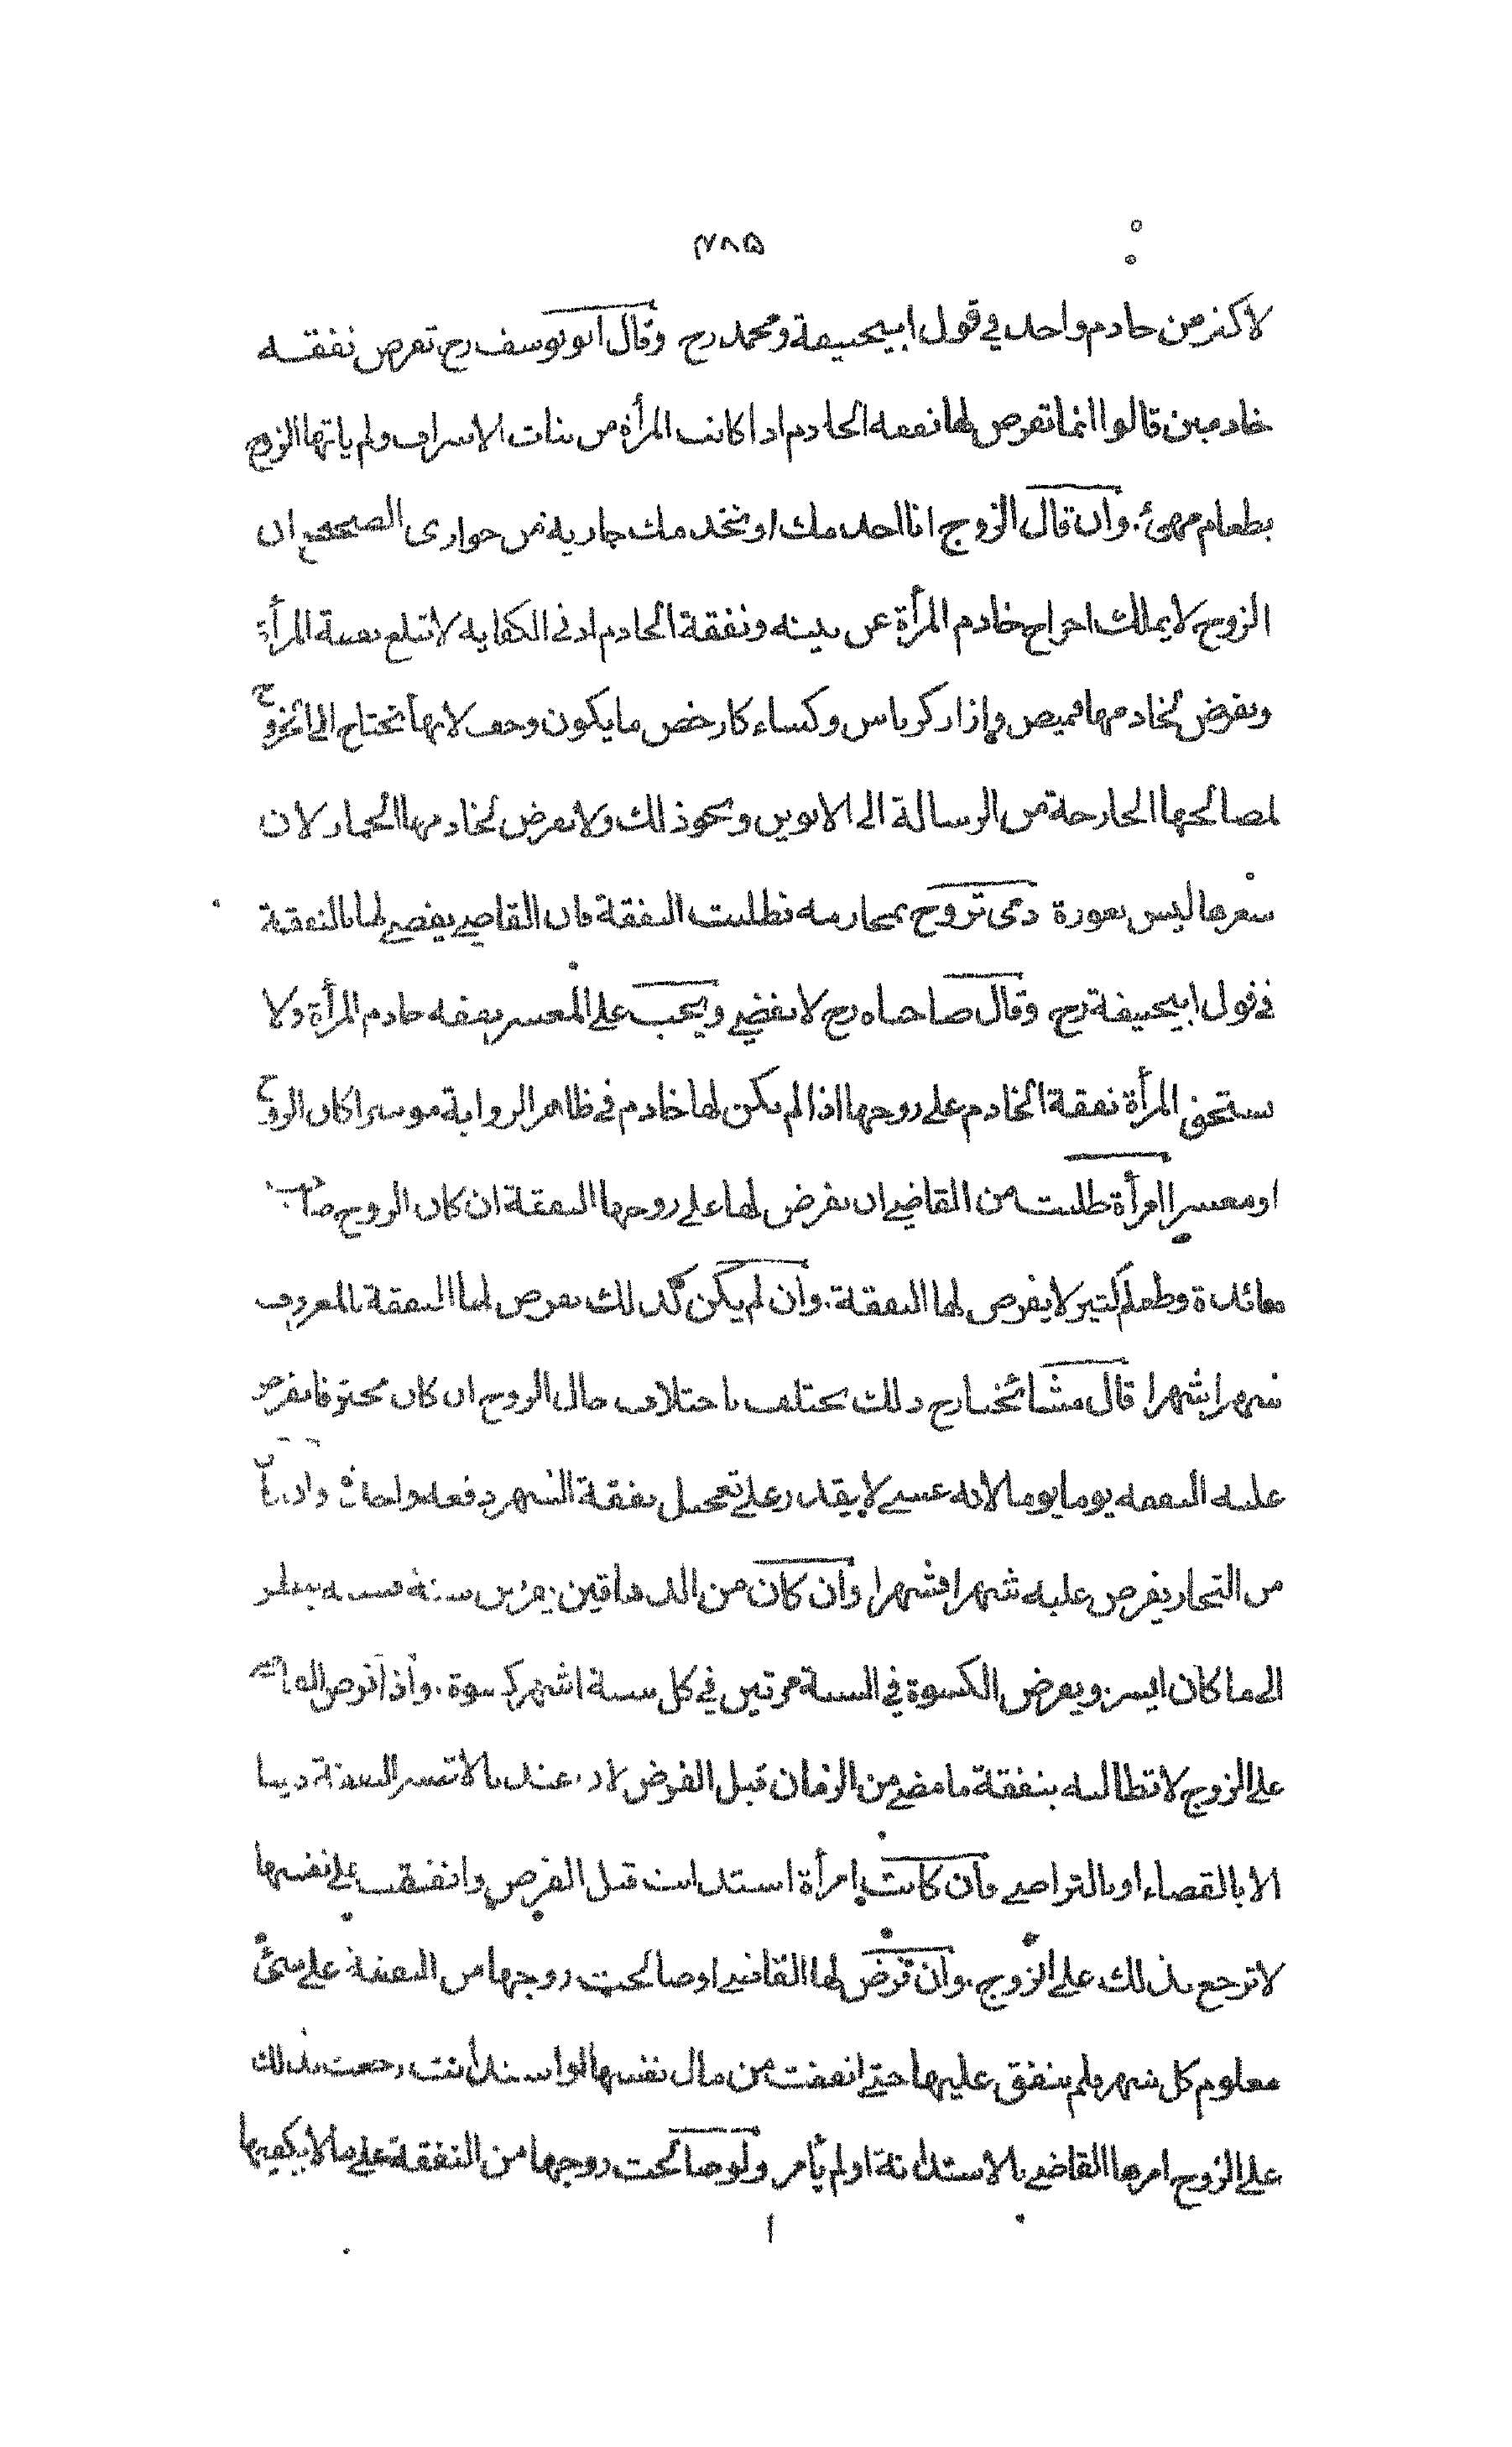 ٢٨٥
لاكثر من خادم واحد في قول ابيحنيفة ومحمد رح وقال ابو يوسف رح تفرض نفقه
خادمين قالوا انما تفرض لها نفقه الخادم اذا كانت المرأة من بنات الاشراف ولم ياتها الزوج
بطعام مهيئ. وان قال الزوج انا اخدمك او يخدمك جارية من جواري الصحيح ان
الزوج لا يملك اخراج خادم المرأة عن بيته ونفقة الخادم ادنى الكفايه لا تبلغ نفقة المرأة
ويفرض لخادمها قميص وازار كرباس وكساء كارخص ما يكون وخف لانها تحتاج الى الخروج
لمصالحها الخارجة من الرسالة الى الابوين ونحو ذلك ولا يفرض لخادمها الخمار لان
شعرها ليس بعورة ذمى تزوج بمحارمه فطلبت النفقة فان القاضي يقضي لها بالنفقة
في قول ابيحنيفة رح وقال صاحباه رح لا يقضي ويجب على المعسر نفقه خادم المرأة ولا
تستحق المرأة نفقة الخادم على زوجها اذا لم يكن لها خادم في ظاهر الرواية موسرا كان الزوج
او معسرا امرأة طلبت من القاضي ان يفرض لها على زوجها النفقة ان كان الزوج صاحب
مائدة وطعام كثير لا يفرض لها النفقة. وان لم يكن كذلك يفرض لها النفقة بالمعروف
شهرا بشهرا قال مشائخنا رح ذلك يختلف باختلاف حال الزوج ان كان محترفا يفرض
عليه النفقه يوما يوما لانه عسى لا يقدر على تعجيل نفقة الشهر دفعه واحدة وان كان
من التجار يفرض عليه شهرا فشهرا وان كان من الدهاقين يفرض سنة فسنه ينظر
الى ما كان ايسر ويفرض الكسوة في السنة مرتين في كل ستة اشهر كسوة. واذا فرض القاضي
على الزوج لا تطالبه بنفقة ما مضى من الزمان قبل الفرض لان عندنا لا تصير النفقة دينا
الا بالقضاء او بالتراضي فان كانت امرأة استدانت قبل الفرض وانفقت على نفسها
لا ترجع بذلك على الزوج. وان فرض لها القاضي او صالحت زوجها من النفقة على شئ
معلوم كل شهر فلم ينفق عليها حتى انفقت من مال نفسها او استدانت رجعت بذلك
على الزوج امرها القاضي بالاستدانة او لم يأمر ولو صالحت زوجها من النفقة على ما لا يكفيها